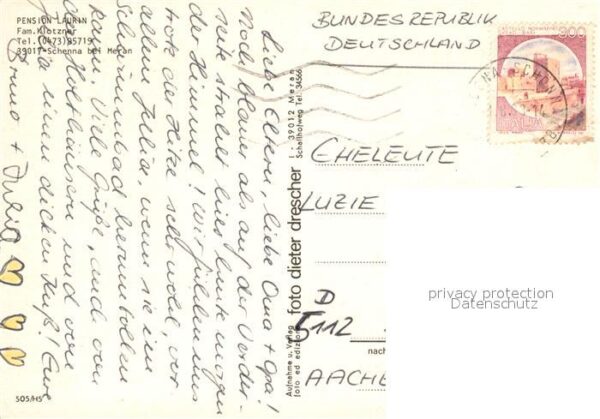 PENSION LAURIN
Fam. Klotzner
Tel. (0473) 95719
39017 Schenna bei Meran
Liebe Eltern, liebe Oma + Opa!
Noch blauer als auf der Vorder-
seite strahlt hier heute morgen
der Himmel! Wir fühlen uns
trotz der Hitze sehr wohl, vor
allem Julia, wenn sie im
Schwimmbad herumtollen
kann. Viele Grüße, auch von
Holthausen und von
Julia einen dicken Kuß! Eure
Bruno + Julia
505/HS
Aufnahme u. Verlag
foto ed edizione
foto dieter drescher
I - 39012 Meran
Schallhofweg Tel. 34566
BUNDESREPUBLIK
DEUTSCHLAND
300
ITALIA
SCHENNA
CHELEUTE
LUZIE
D
5112
nach
AACHE
privacy protection
Datenschutz